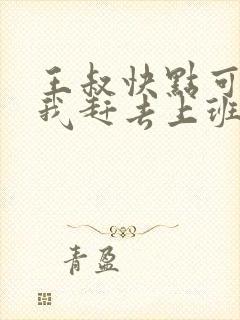 王叔快點可
我赶去上班
青盈